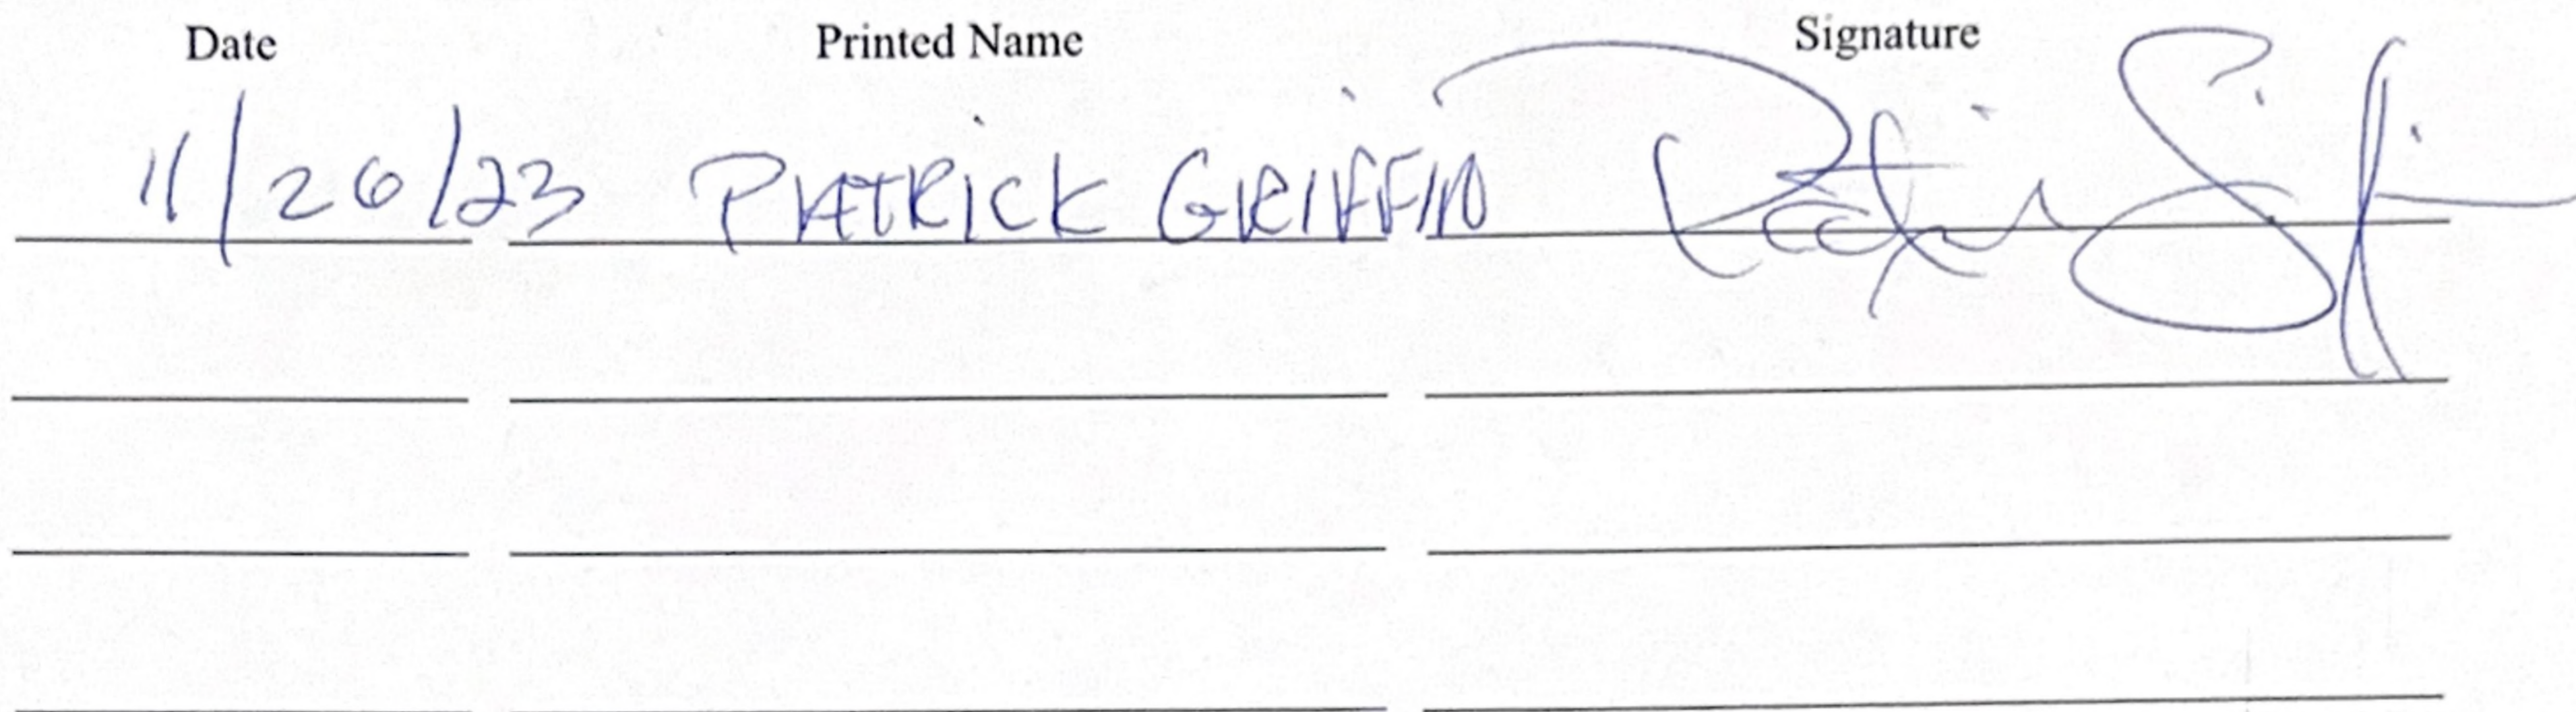 Date Printed Name Signature
11/26/23 PATRICK GRIFFIN